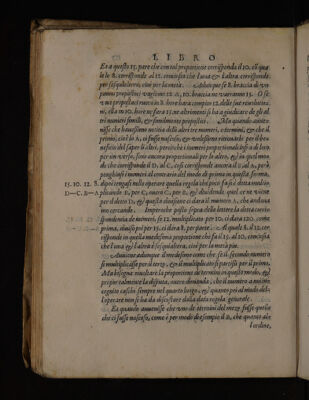 LIBRO
Et a questo 15. pare che con tal proportione corrisponda il 10. cō qua
le lo 8. corrisponde al 12. conciosia che l'una & l'altra corrisponde
per sesquialtera, cioè per la metà. Adūque se 8. braccia di
panno vagliono 12
 10. braccia ne varranno 15. O se
una
 ruota in 8. hore harà compite 12. delle sue riuolutio
ni, ella in 10. hore ne farà 15. ne altrimenti si ha à giudicare de gli al
tri numeri simili, & similmente propostici. Ma quando auenis
se che hauessimo notitia delli altri tre numeri, e termini, & che il
primo, cioè lo A, ci fusse nascoso, & volessimo ritrouarlo per il be
neficio del saper li altri, perciò che i numeri proportionali insino a di lo
ro per un verso, sono ancora proportionali per lo altro, & quel mo
do che corrisponde il D. al C, così corrisponde ancora il B, ad A, però
ponghinsi i numeri al contrario del modo di prima in questa forma,
15. 10. 12. 8. dipoi tengasi nello operare quella regola che poco fa si è data multi
D—C. B—A plicando D, per C, ouero C, per B, & diuidendo quel che ne viene
per il detto D, & questa diuisione ci darà il numero A, che andaua
mo cercando. Imperoche posto sopra delle lettere la detta corri
spondenza de numeri, se 12. multiplicato per 10. ci darà 120. come
prima, diuiso poi per 15, ci darà 8. per parte: al quale 8. il 12. cor
risponde in quella medesima proportione che fa il 15. al 10, conciosia
che l'una & l'altra è sesquialtera, cioè per la metà piu.
Auuiene adunque il medesimo come che se il secondo numero
si multiplicasse per il terzo, & il multiplicato si partisse per il primo.
Ma bisogna mutare la proportione de termini in questo modo, &
propriamente la disputa, ouero domanda, che il numero a noi in
cognito caschi sempre nel quarto luogo, & quanto poi al modo del
l'operare non se ha da discostare dalla data regola generale.
Et quando auuenisse che vno de termini del mezo fusse quello
che ci fusse nascoso, come è per modo de esempio il B, che quanto allo
l'ordine,